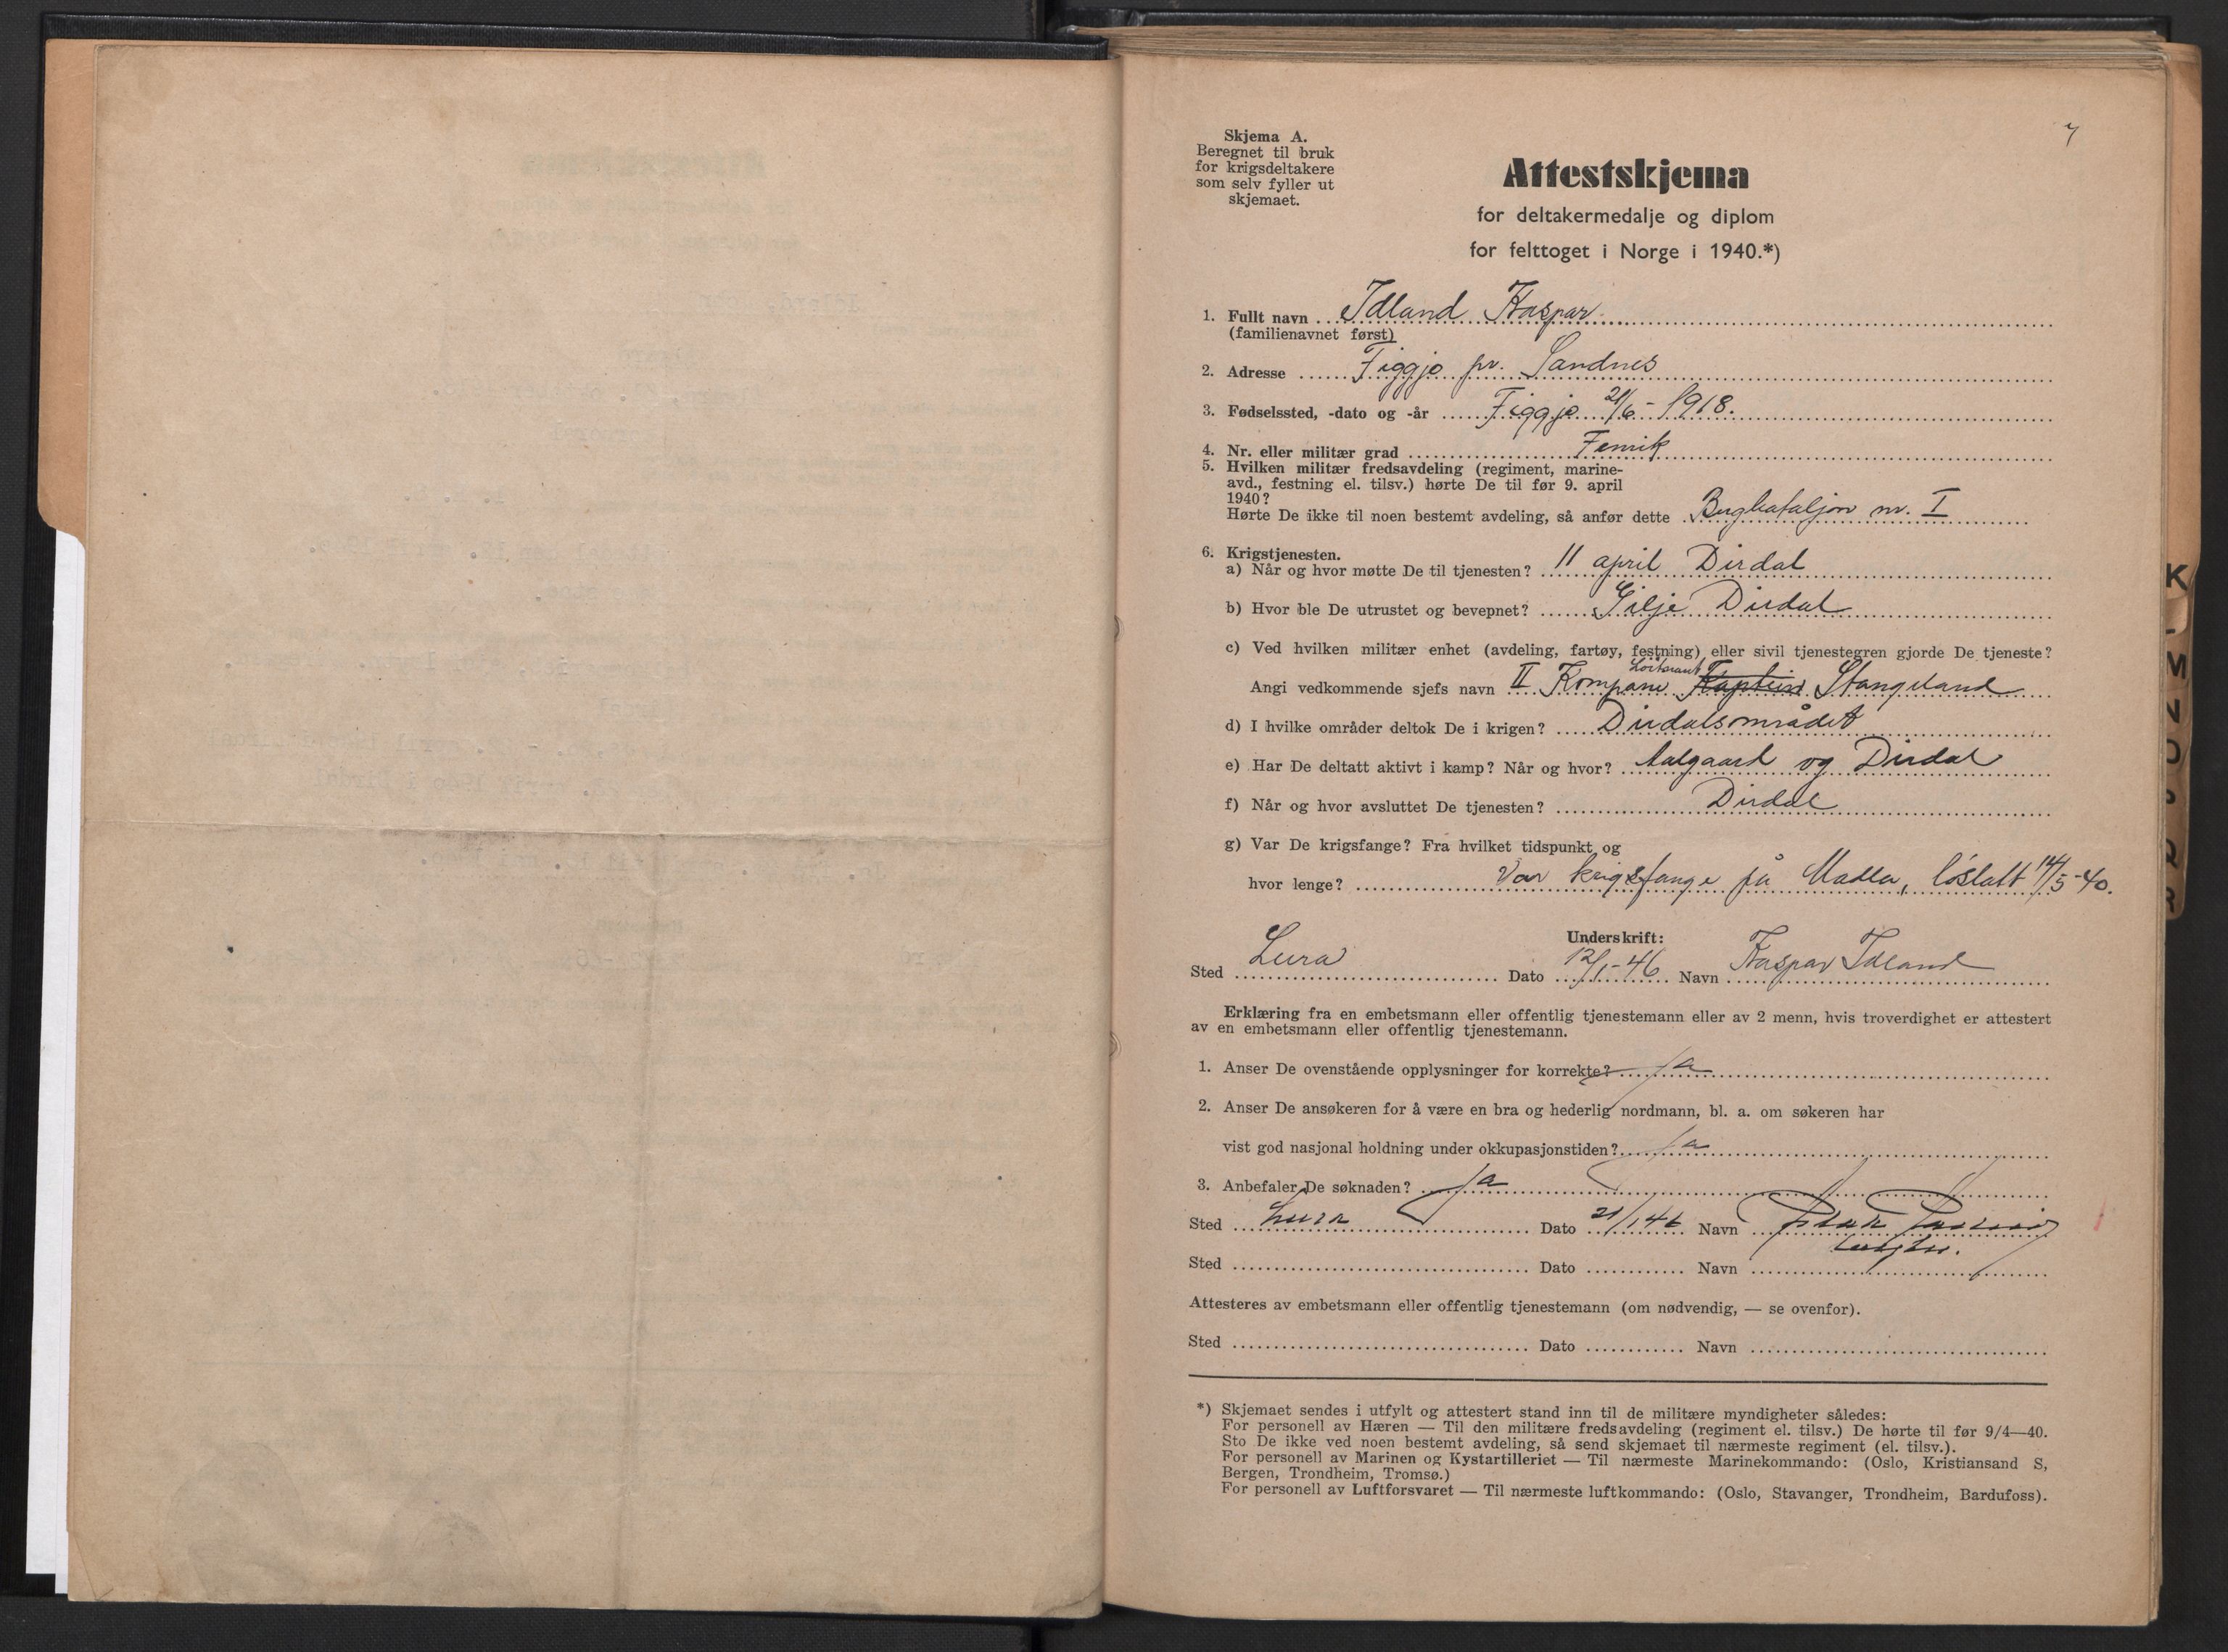 Skjema A.
Beregnet til bruk
for krigsdeltakere
som selv fyller ut
skjemaet.
Attestskjema
for deltakermedalje og diplom
for felttoget i Norge i 1940.*)
1. Fullt navn Idland Kaspar
(familienavnet først)
2. Adresse Figgjo pr. Sandnes
3. Fødselssted, -dato og -år Figgjo 21/6-1918.
4. Nr. eller militær grad Fenrik
5. Hvilken militær fredsavdeling (regiment, marine-
avd., festning el. tilsv.) hørte De til før 9. april
1940?
Hørte De ikke til noen bestemt avdeling, så anfør dette Bergbataljon nr. I
6. Krigstjenesten.
a) Når og hvor møtte De til tjenesten? 11 april Dirdal
b) Hvor ble De utrustet og bevepnet? Gilje Dirdal
c) Ved hvilken militær enhet (avdeling, fartøy, festning) eller sivil tjenestegren gjorde De tjeneste?
Løitnant
Angi vedkommende sjefs navn II Kompani Kaptein Stangeland
d) I hvilke områder deltok De i krigen? Dirdalsområdet
e) Har De deltatt aktivt i kamp? Når og hvor? Aalgaard og Dirdal
f) Når og hvor avsluttet De tjenesten? Dirdal
g) Var De krigsfange? Fra hvilket tidspunkt og
hvor lenge? Var krigsfange på Madla, løslatt 14/5-40.
Underskrift:
Sted Lura Dato 12/1-46 Navn Kaspar Idland
Erklæring fra en embetsmann eller offentlig tjenestemann eller av 2 menn, hvis troverdighet er attestert
av en embetsmann eller offentlig tjenestemann.
1. Anser De ovenstående opplysninger for korrekte? Ja
2. Anser De ansøkeren for å være en bra og hederlig nordmann, bl. a. om søkeren har
vist god nasjonal holdning under okkupasjonstiden? Ja
3. Anbefaler De søknaden? Ja
Sted Lura Dato 21/1 46 Navn
Sted Dato Navn
Attesteres av embetsmann eller offentlig tjenestemann (om nødvendig, — se ovenfor).
Sted Dato Navn
*) Skjemaet sendes i utfylt og attestert stand inn til de militære myndigheter således:
For personell av Hæren — Til den militære fredsavdeling (regiment el. tilsv.) De hørte til før 9/4—40.
Sto De ikke ved noen bestemt avdeling, så send skjemaet til nærmeste regiment (el. tilsv.).
For personell av Marinen og Kystartilleriet — Til nærmeste Marinekommando: (Oslo, Kristiansand S,
Bergen, Trondheim, Tromsø.)
For personell av Luftforsvaret — Til nærmeste luftkommando: (Oslo, Stavanger, Trondheim, Bardufoss).
K
M